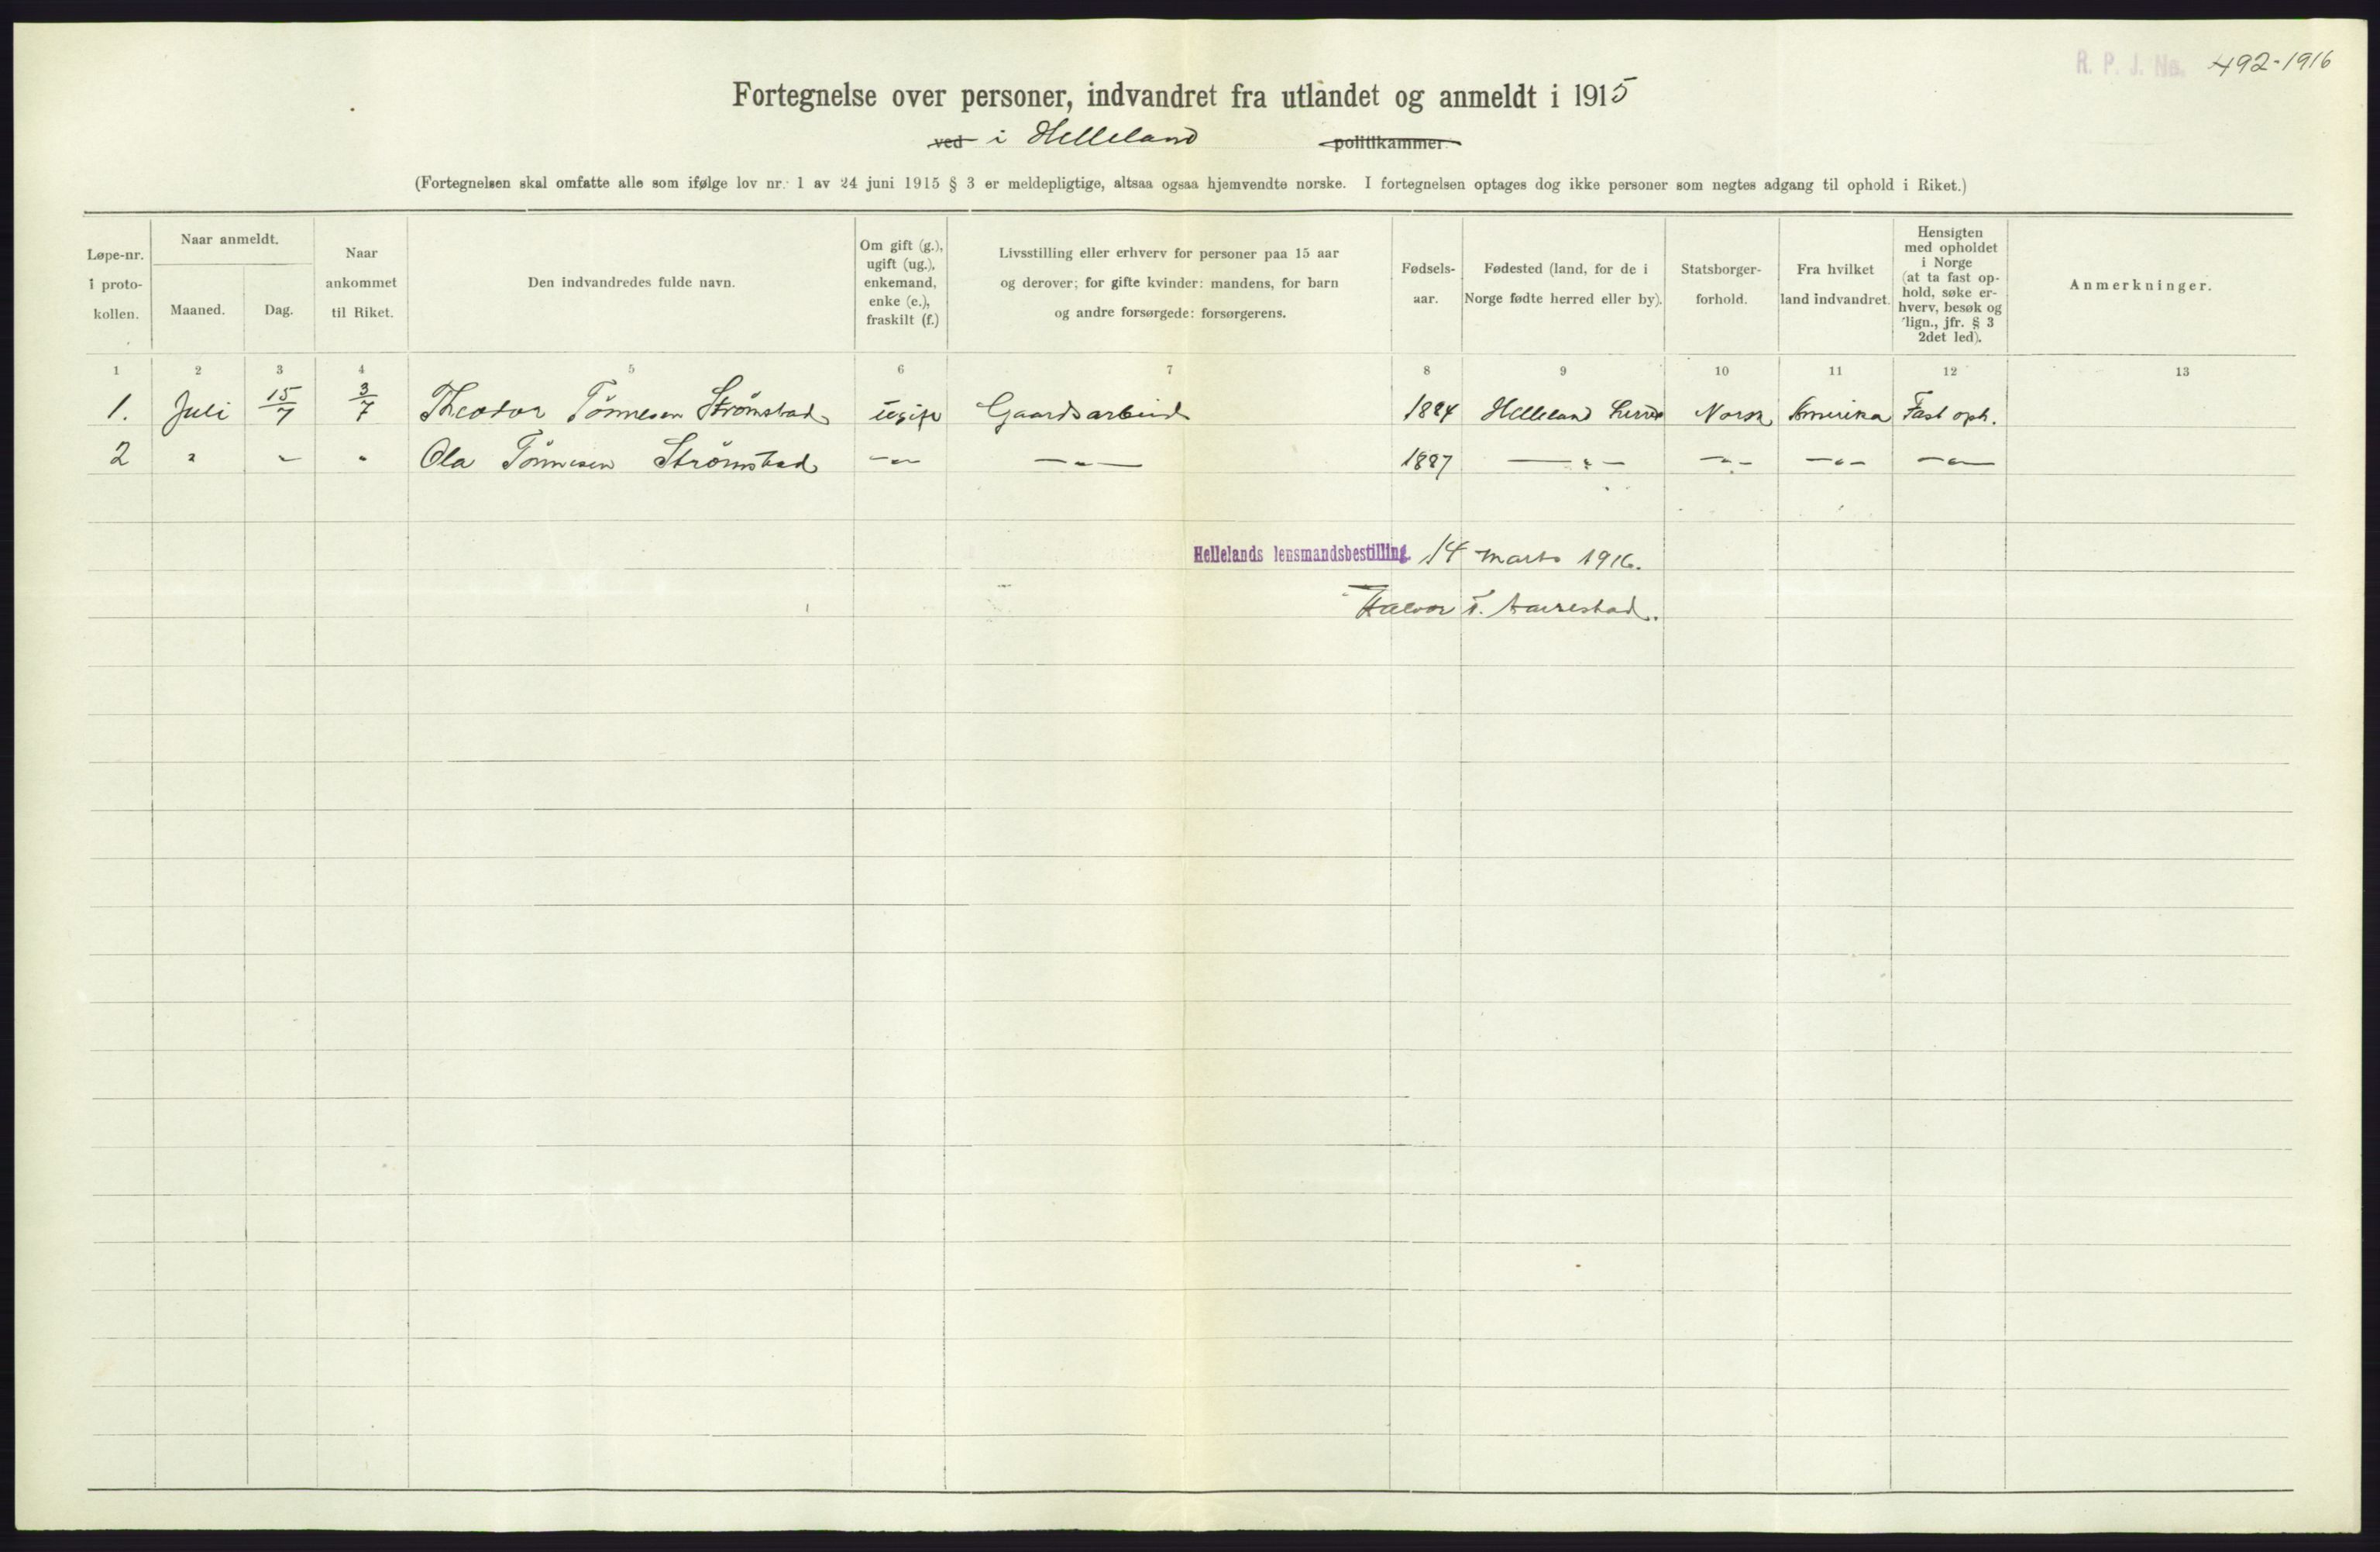 R. P. J. No. 492-1916
Fortegnelse over personer, indvandret fra utlandet og anmeldt i 1915
ved i Helleland politikammer
(Fortegnelsen skal omfatte alle som ifølge lov nr. 1 av 24 juni 1915 § 3 er meldepligtige, altsaa ogsaa hjemvendte norske. I fortegnelsen optages dog ikke personer som negtes adgang til ophold i Riket.)
Løpe-nr.
i proto-
kollen.
Naar anmeldt.
Maaned. Dag.
Naar
ankommet
til Riket.
Den indvandredes fulde navn.
Om gift (g.),
ugift (ug.),
enkemand,
enke (e.),
fraskilt (f.)
Livsstilling eller erhverv for personer paa 15 aar
og derover; for gifte kvinder: mandens, for barn
og andre forsørgede: forsørgerens.
Fødsels-
aar.
Fødested (land, for de i
Norge fødte herred eller by).
Statsborger-
forhold.
Fra hvilket
land indvandret.
Hensigten
med opholdet
i Norge
(at ta fast op-
hold, søke er-
hverv, besøk og
lign., jfr. § 3
2det led).
Anmerkninger.
1 2 3 4 5 6 7 8 9 10 11 12 13
1. Juli 15/7 3/7 Theodor Tönnesen Strömstad ugift Gaardsarbeid 1884 Helleland herred Norsk Amerika Fast oph.
2 " " " Ola Tönnesen Strömstad -"- -"- 1887 -"- -"- -"- -"-
Hellelands lensmandsbestilling 14 marts 1916.
Halvor T.